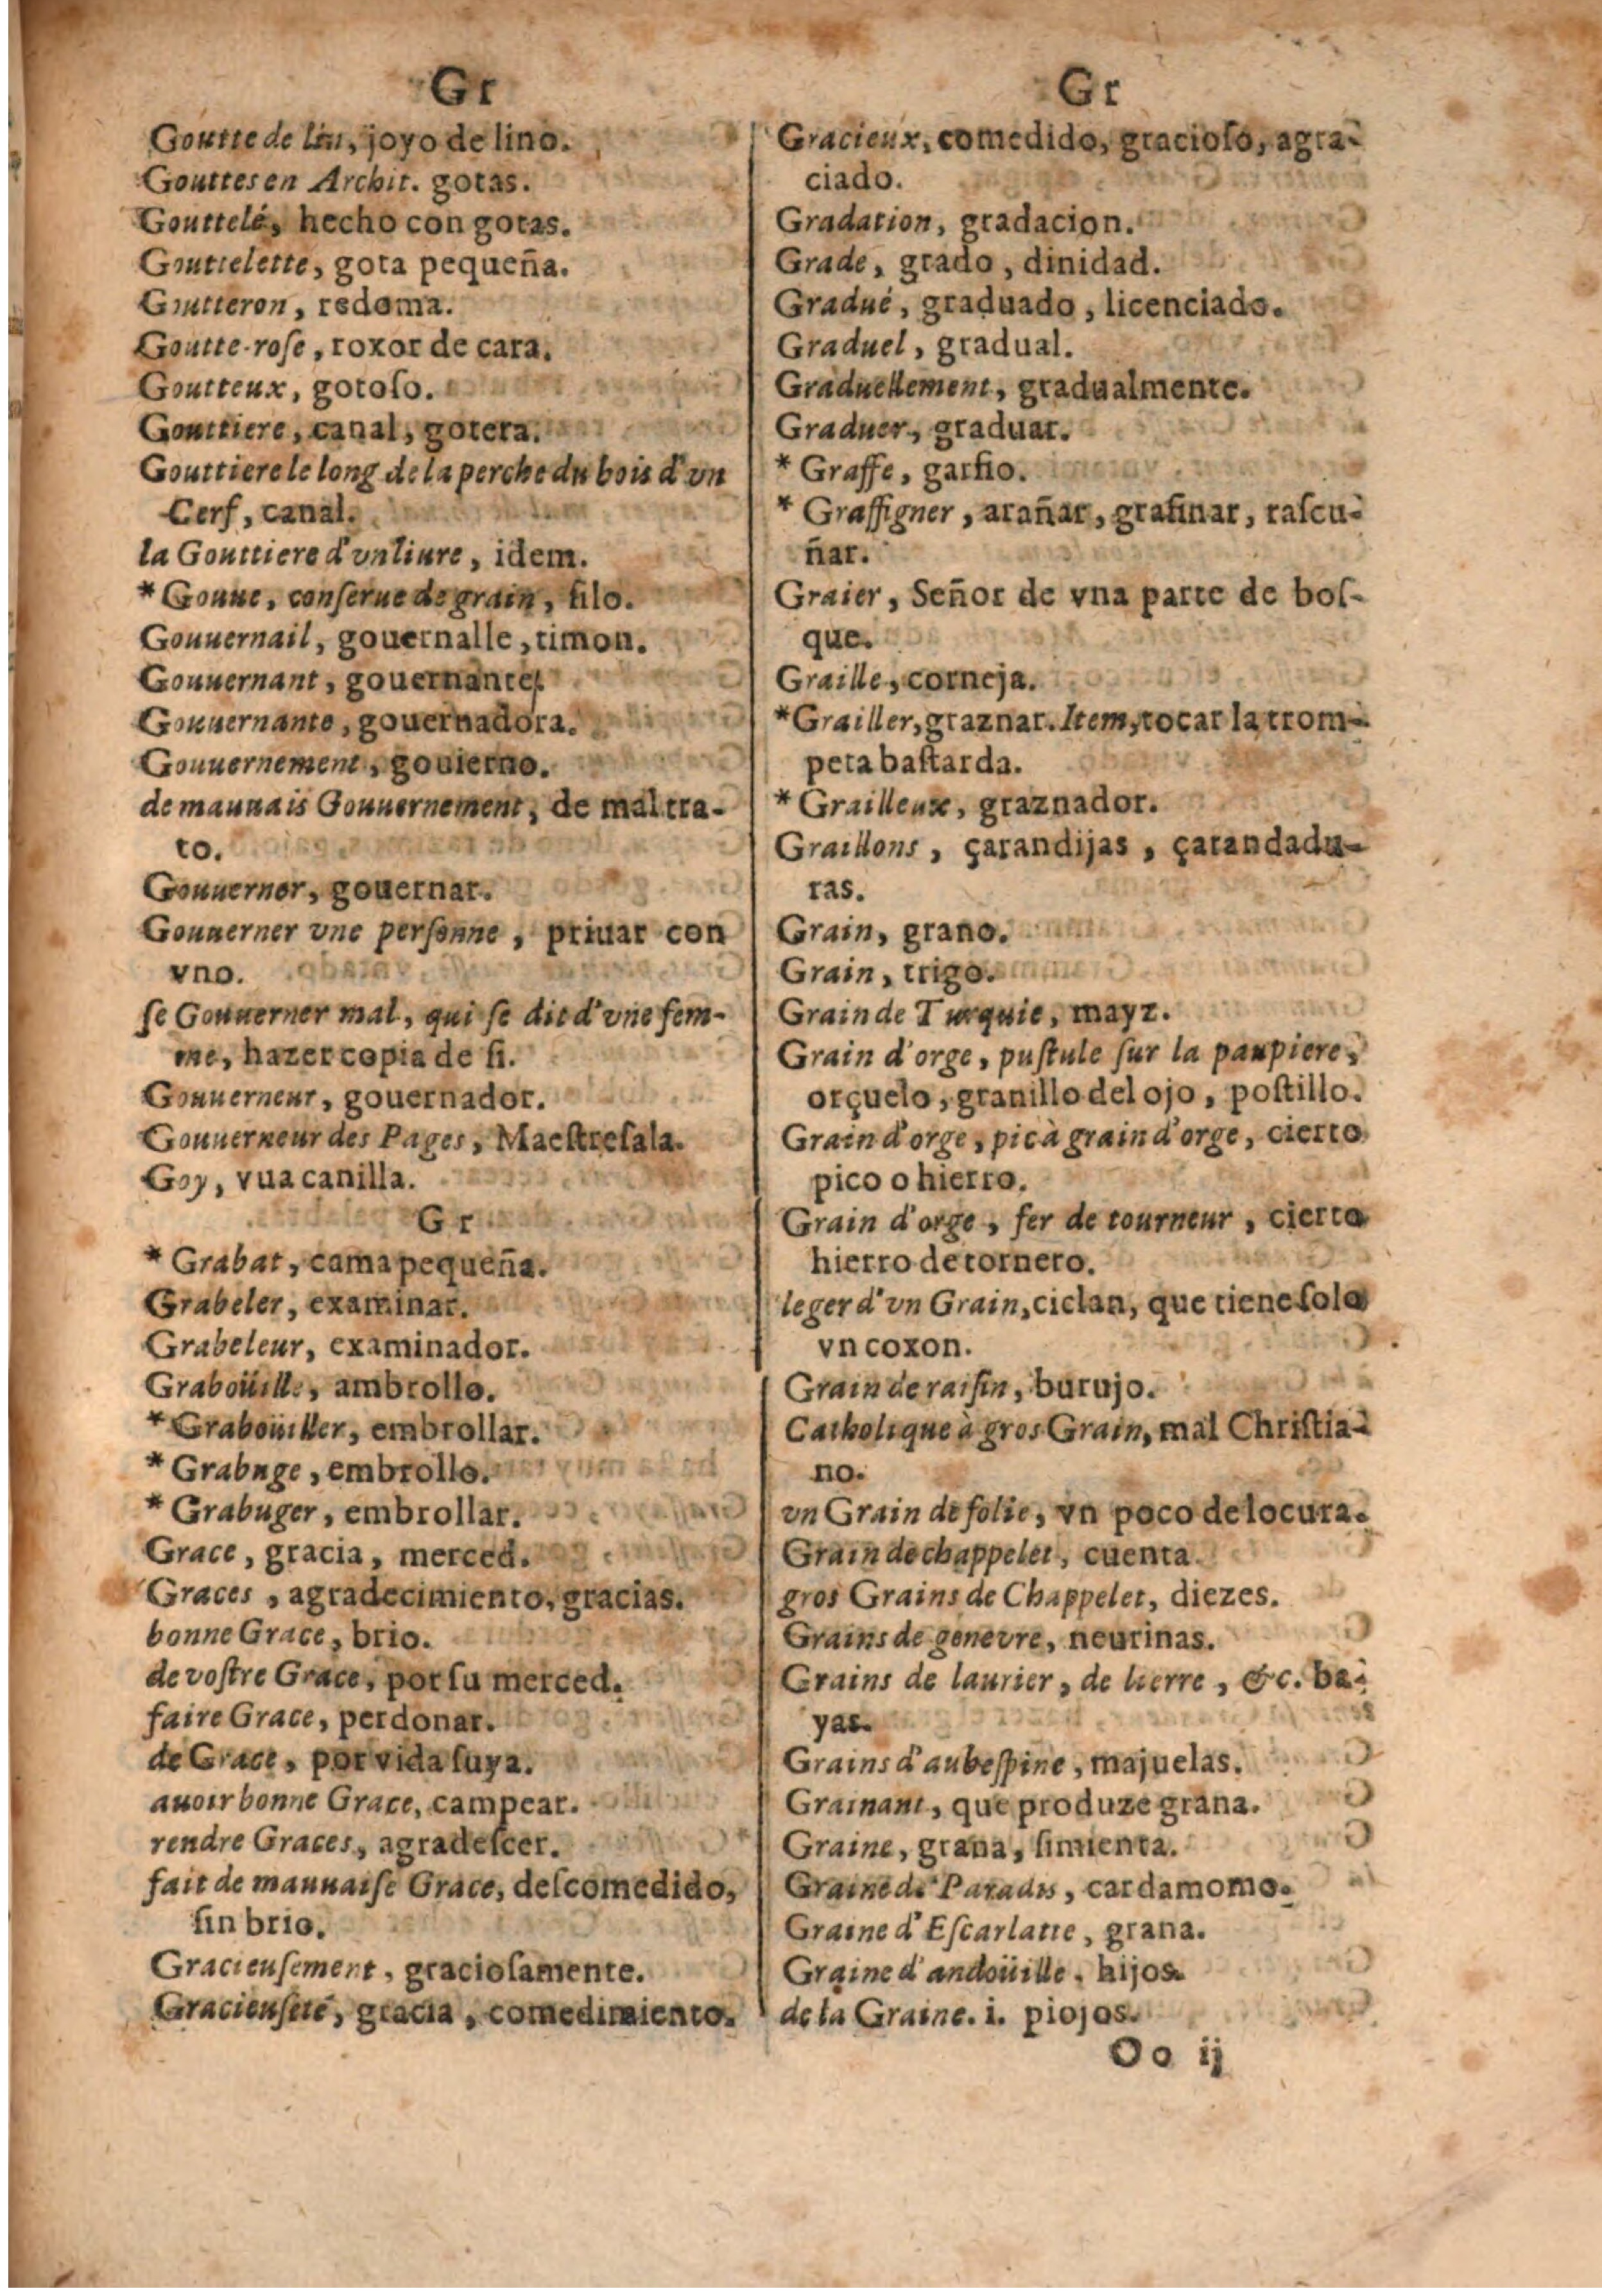 Gr
Goutte de lin, joyo de lino.
Gouttes en Archit. gotas.
Gouttelé, hecho con gotas.
Gouttelette, gota pequeña.
Goutteron, redoma.
Goutte-roſe, roxor de cara.
Goutteux, gotoſo.
Gouttiere, canal, gotera.
Gouttiere le long de la perche du bois d'vn
Cerf, canal.
la Gouttiere d'vn liure, idem.
* Gouue, conſerue de grain, ſilo.
Gouuernail, gouernalle, timon.
Gouuernant, gouernante.
Gouuernante, gouernadora.
Gouuernement, gouierno.
de mauuais Gouuernement, de mal tra-
to.
Gouuerner, gouernar.
Gouuerner vne perſonne, priuar con
vno.
ſe Gouuerner mal, qui ſe dit d'vne fem-
me, hazer copia de ſi.
Gouuerneur, gouernador.
Gouuerneur des Pages, Maeſtreſala.
Goy, vua canilla.
Gr
* Grabat, cama pequeña.
Grabeler, examinar.
Grabeleur, examinador.
Graboüille, ambrollo.
* Graboüiller, embrollar.
* Grabuge, embrollo.
* Grabuger, embrollar.
Grace, gracia, merced.
Graces, agradecimiento, gracias.
bonne Grace, brio.
de voſtre Grace, por ſu merced.
faire Grace, perdonar.
de Grace, por vida ſuya.
auoir bonne Grace, campear.
rendre Graces, agradeſcer.
fait de mauuaiſe Grace, deſcomedido,
ſin brio.
Gracieuſement, gracioſamente.
Gracieuſeté, gracia, comedimiento.
Gr
Gracieux, comedido, gracioſo, agra-
ciado.
Gradation, gradacion.
Grade, grado, dinidad.
Gradué, graduado, licenciado.
Graduel, gradual.
Graduellement, gradualmente.
Graduer, graduar.
* Graffe, garfio.
* Graffigner, arañar, grafinar, raſcu-
ñar.
Graier, Señor de vna parte de boſ-
que.
Graille, corneja.
* Grailler, graznar. Item, tocar la trom-
peta baſtarda.
* Grailleux, graznador.
Graillons, çarandijas, çarandadu-
ras.
Grain, grano.
Grain, trigo.
Grain de Turquie, mayz.
Grain d'orge, puſtule ſur la paupiere,
orçuelo, granillo del ojo, poſtillo.
Grain d'orge, pic à grain d'orge, cierto
pico o hierro.
Grain d'orge, fer de tourneur, cierto
hierro de tornero.
leger d'vn Grain, ciclan, que tiene ſolo
vn coxon.
Grain de raiſin, burujo.
Catholique à gros Grain, mal Chriſtia-
no.
vn Grain de folie, vn poco de locura.
Grain de chappelet, cuenta
gros Grains de Chappelet, diezes.
Grains de genevre, neurinas.
Grains de laurier, de lierre, &c. ba-
yas.
Grains d'aubeſpine, majuelas.
Grainant, que produze grana.
Graine, grana, ſimienta.
Graine de Paradis, cardamomo.
Graine d'Eſcarlatte, grana.
Graine d'andoüille, hijos.
de la Graine. i. piojos.
Oo ij